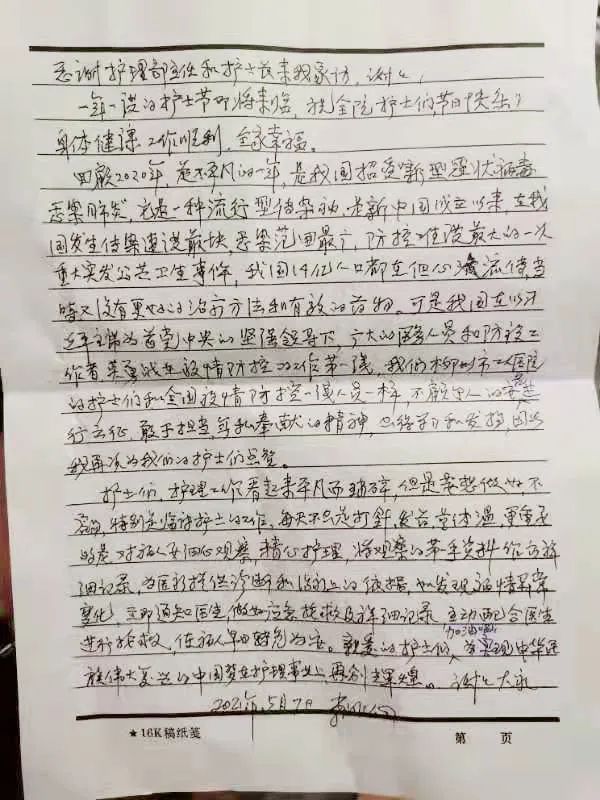 感谢护理部主任和护士长来我家访，谢谢，
一年一渡的护士节即将来临，祝全院护士们节日快乐，
身体健康 工作顺利，全家幸福。
回顾2020年，是不平凡的一年，是我国招受新型冠状病毒
感染肺炎，它是一种流行型传染病，是新中国成立以来，在我
国发生传染速渡最快，感染范围最广，防控难渡最大的一次
重大突发公共卫生事件，我国14亿人口都在担心
时又没有更好的治疗方法和有效的药物。可是我国在以习
近平主席为首党中央的坚强领导下，广大的医务人员和防控工
作者 英勇战在疫情防控的工作第一线，我们柳州市工人医院
的护士们和全国疫情防控一线人员一样 不顾个人的安危
行 敢于担当，无私奉献的精神，
我再次为我们的护士们点赞。
护士们，护理工作看起来平凡而琐碎，但是要想做好，不
容易，特别是临床护士的工作，每天不只是打针，发药，量体温，更重要
的是 对病人要细心观察，精心护理，将观察的第一手资料作好详
细记录，为医疗提供诊断和治疗上的依据，如发现病情异常
变化，立即通知医生，做好应急抢救及详细记录，主动配合医生
进行抢救，使病人早日转危为安。亲爱的护士们，加油吧 为实现中华民
族伟大复兴的中国梦在护理事业上，再创辉煌。谢谢大家
2021年5月7日
★16K稿纸笺
第 页